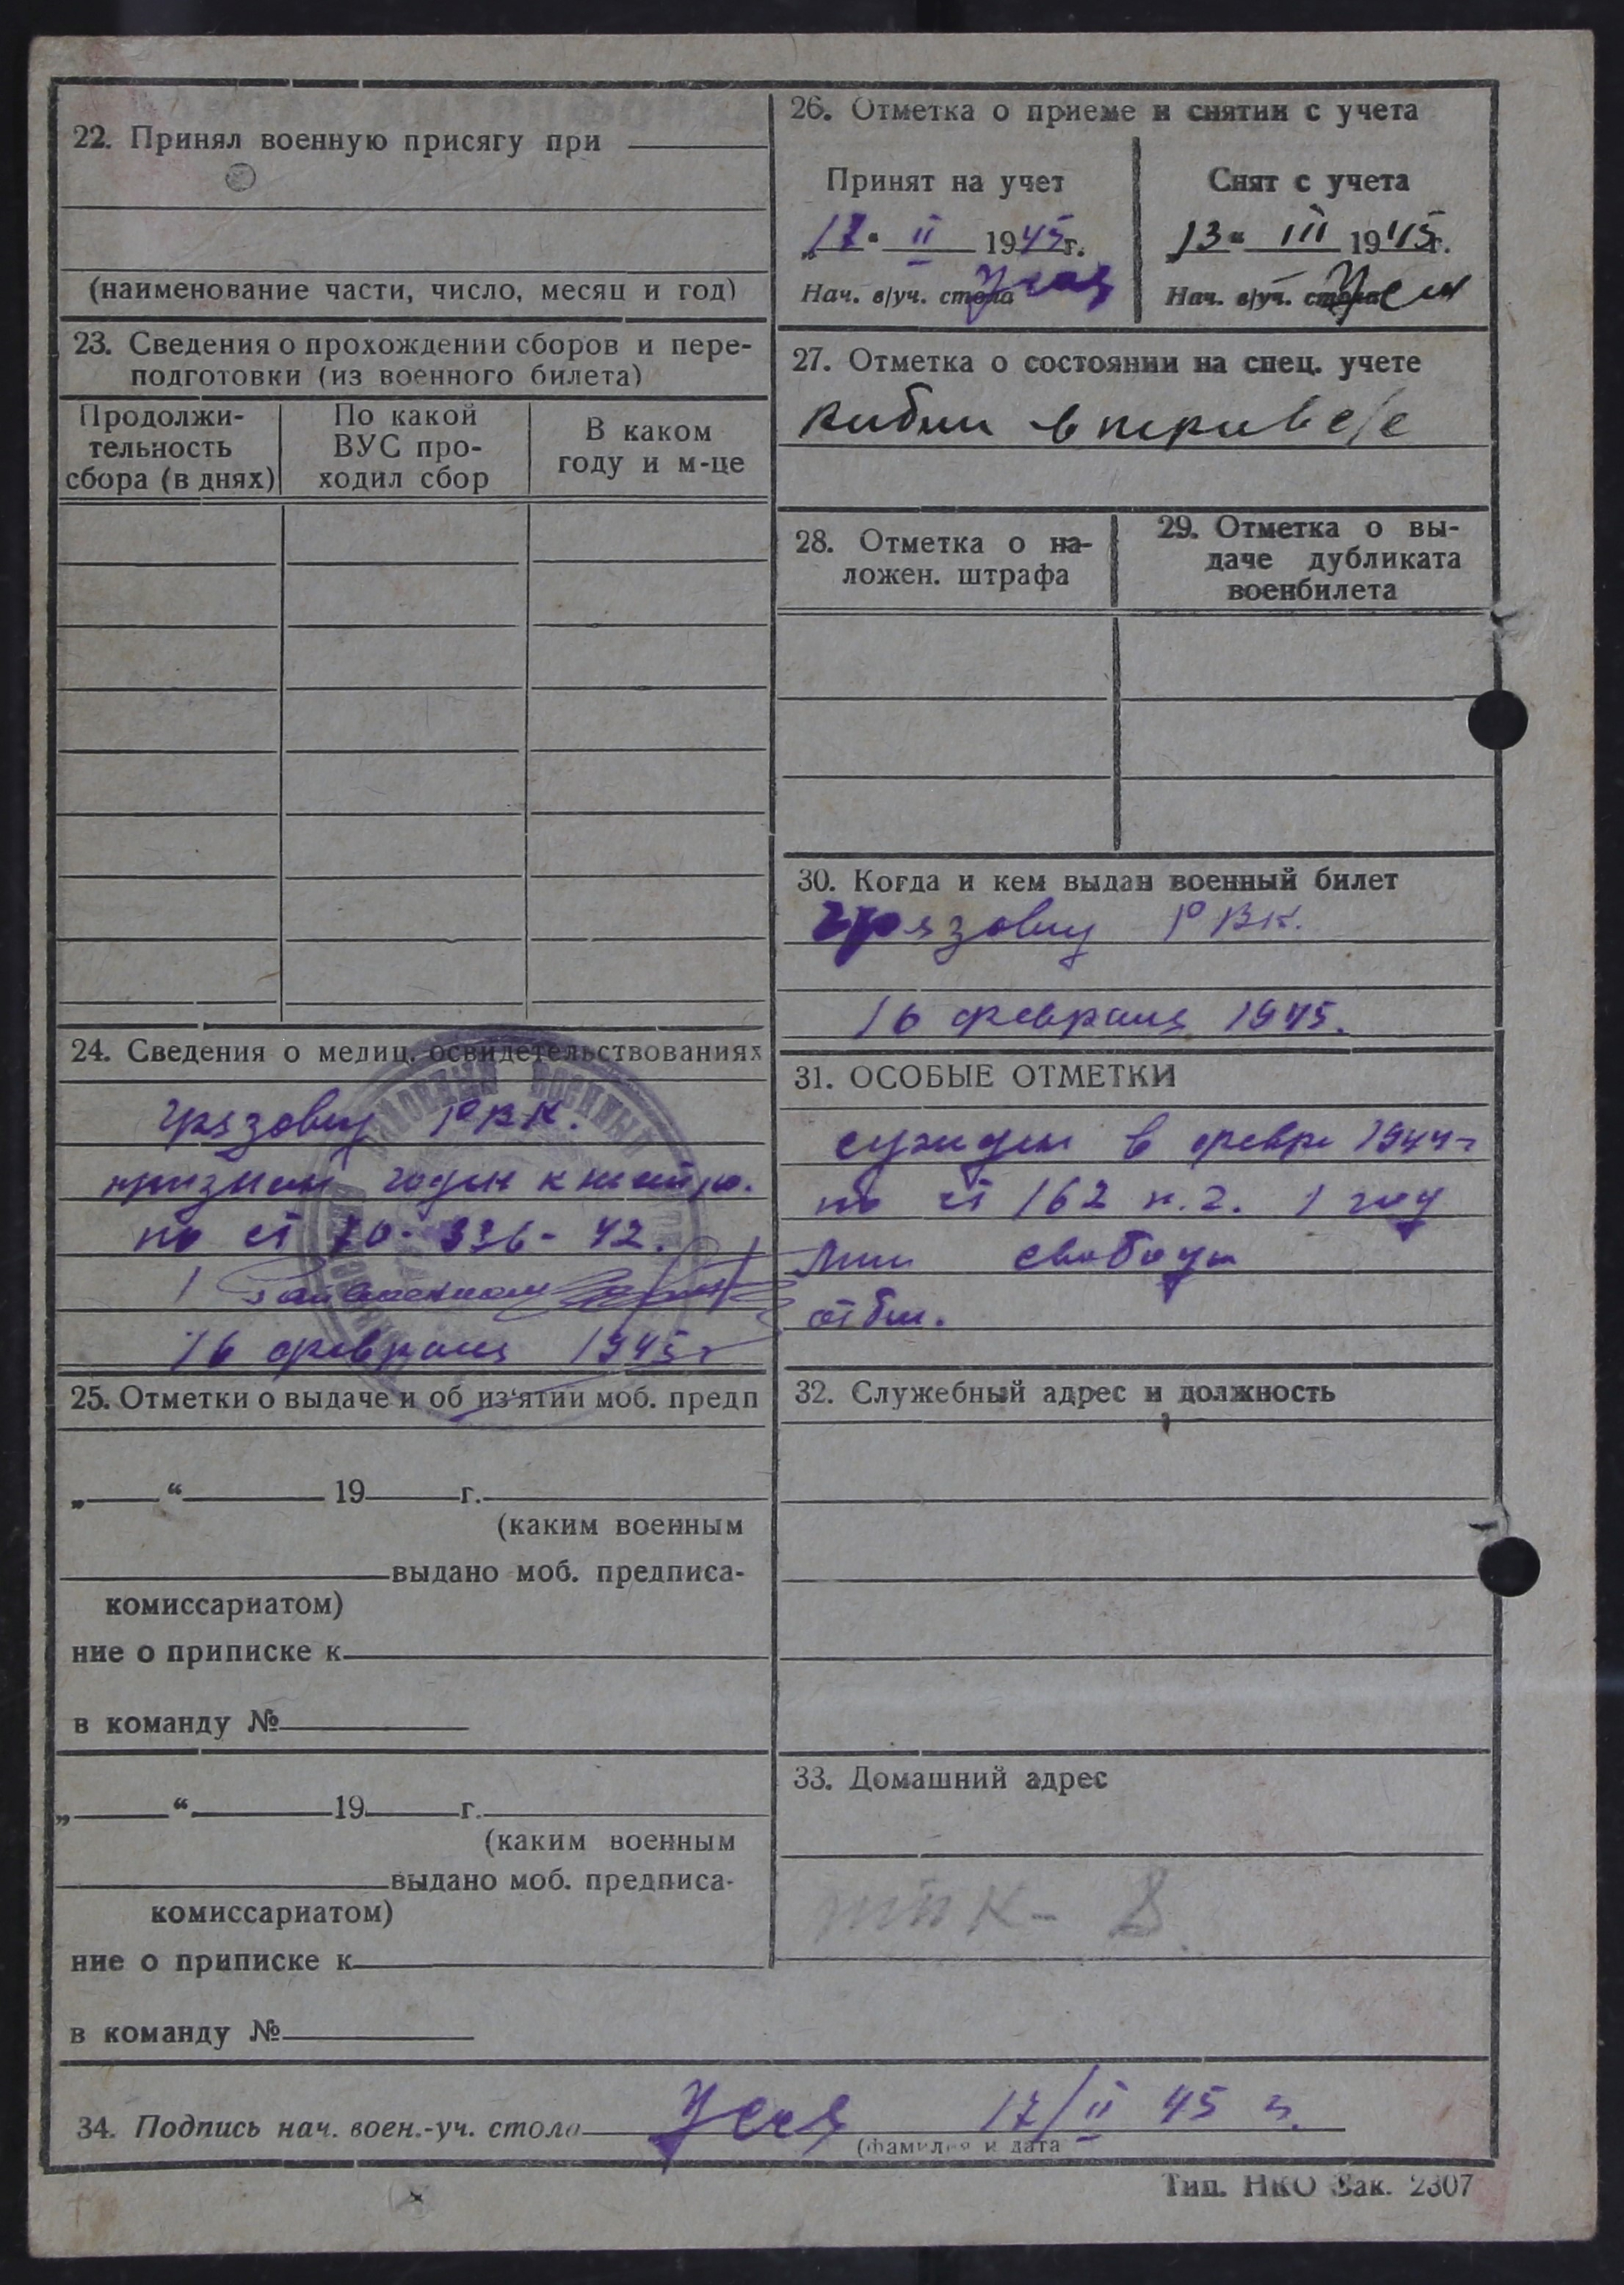 22. Принял военную присягу при
(наименование части, число, месяц и год)
23. Сведения о прохождении сборов и пере-
подготовки (из военного билета)
Продолжи-
тельность
сбора (в днях)
По какой
ВУС про-
ходил сбор
В каком
году и м-це
24. Сведения о медиц. освидетельствованиях
Грязовец РВК.
признан годен к
по ст 70- 336- 42.
16 февраля 1945 г
25. Отметки о выдаче и об из‘ятии моб. предп
„ “ 19 г.
(каким военным
выдано моб. предписа-
комиссариатом)
ние о приписке к
в команду №
„ “ 19 г.
(каким военным
выдано моб. предписа-
комиссариатом)
ние о приписке к
в команду №
26. Отметка о приеме и снятии с учета
Принят на учет
„17“ II 1945г.
Нач. в/уч. стола
Снят с учета
„13“ III 1945г.
Нач. в/уч. стола
27. Отметка о состоянии на спец. учете
28. Отметка о на-
ложен. штрафа
29. Отметка о вы-
даче дубликата
военбилета
30. Когда и кем выдан военный билет
Грязовец РВК.
16 февраля 1945.
31. ОСОБЫЕ ОТМЕТКИ
сужден в февр 1944 г
по ст 162 п. 2. 1 год
лиш свободы
отбыл.
32. Служебный адрес и должность
33. Домашний адрес
34. Подпись нач. воен.-уч. стола 17/II 45 г.
(фамилия и дата
Тип. НКО Зак. 2307